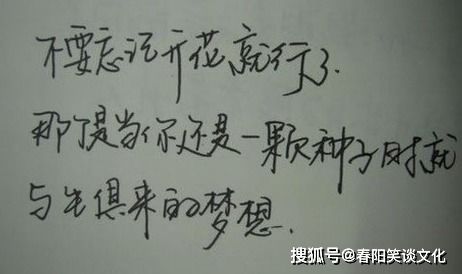 不要忘记开花就行了.
那是当你还是一颗种子时就
与生俱来的梦想.
搜狐号@春阳笑谈文化